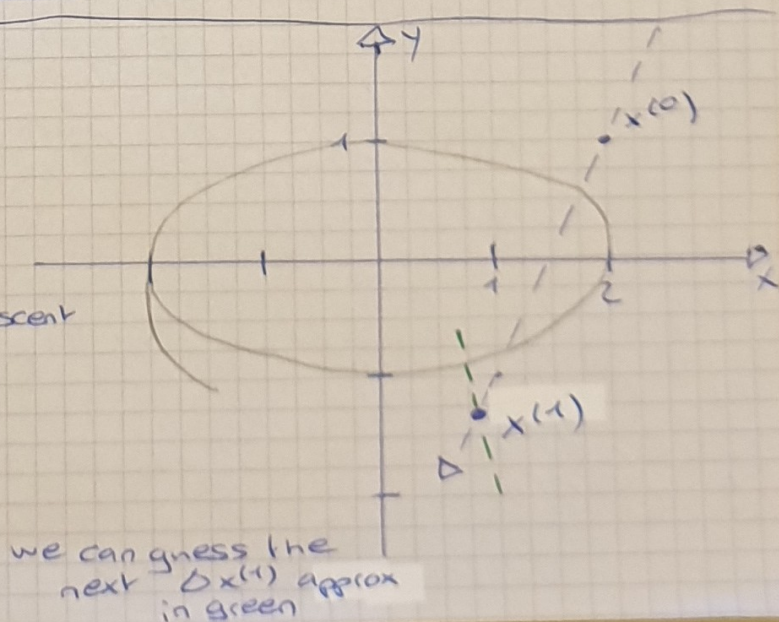 y
x^(0)
1
1
2
x
scent
x^(1)
we can gness the
next Δx^(1) approx
in green